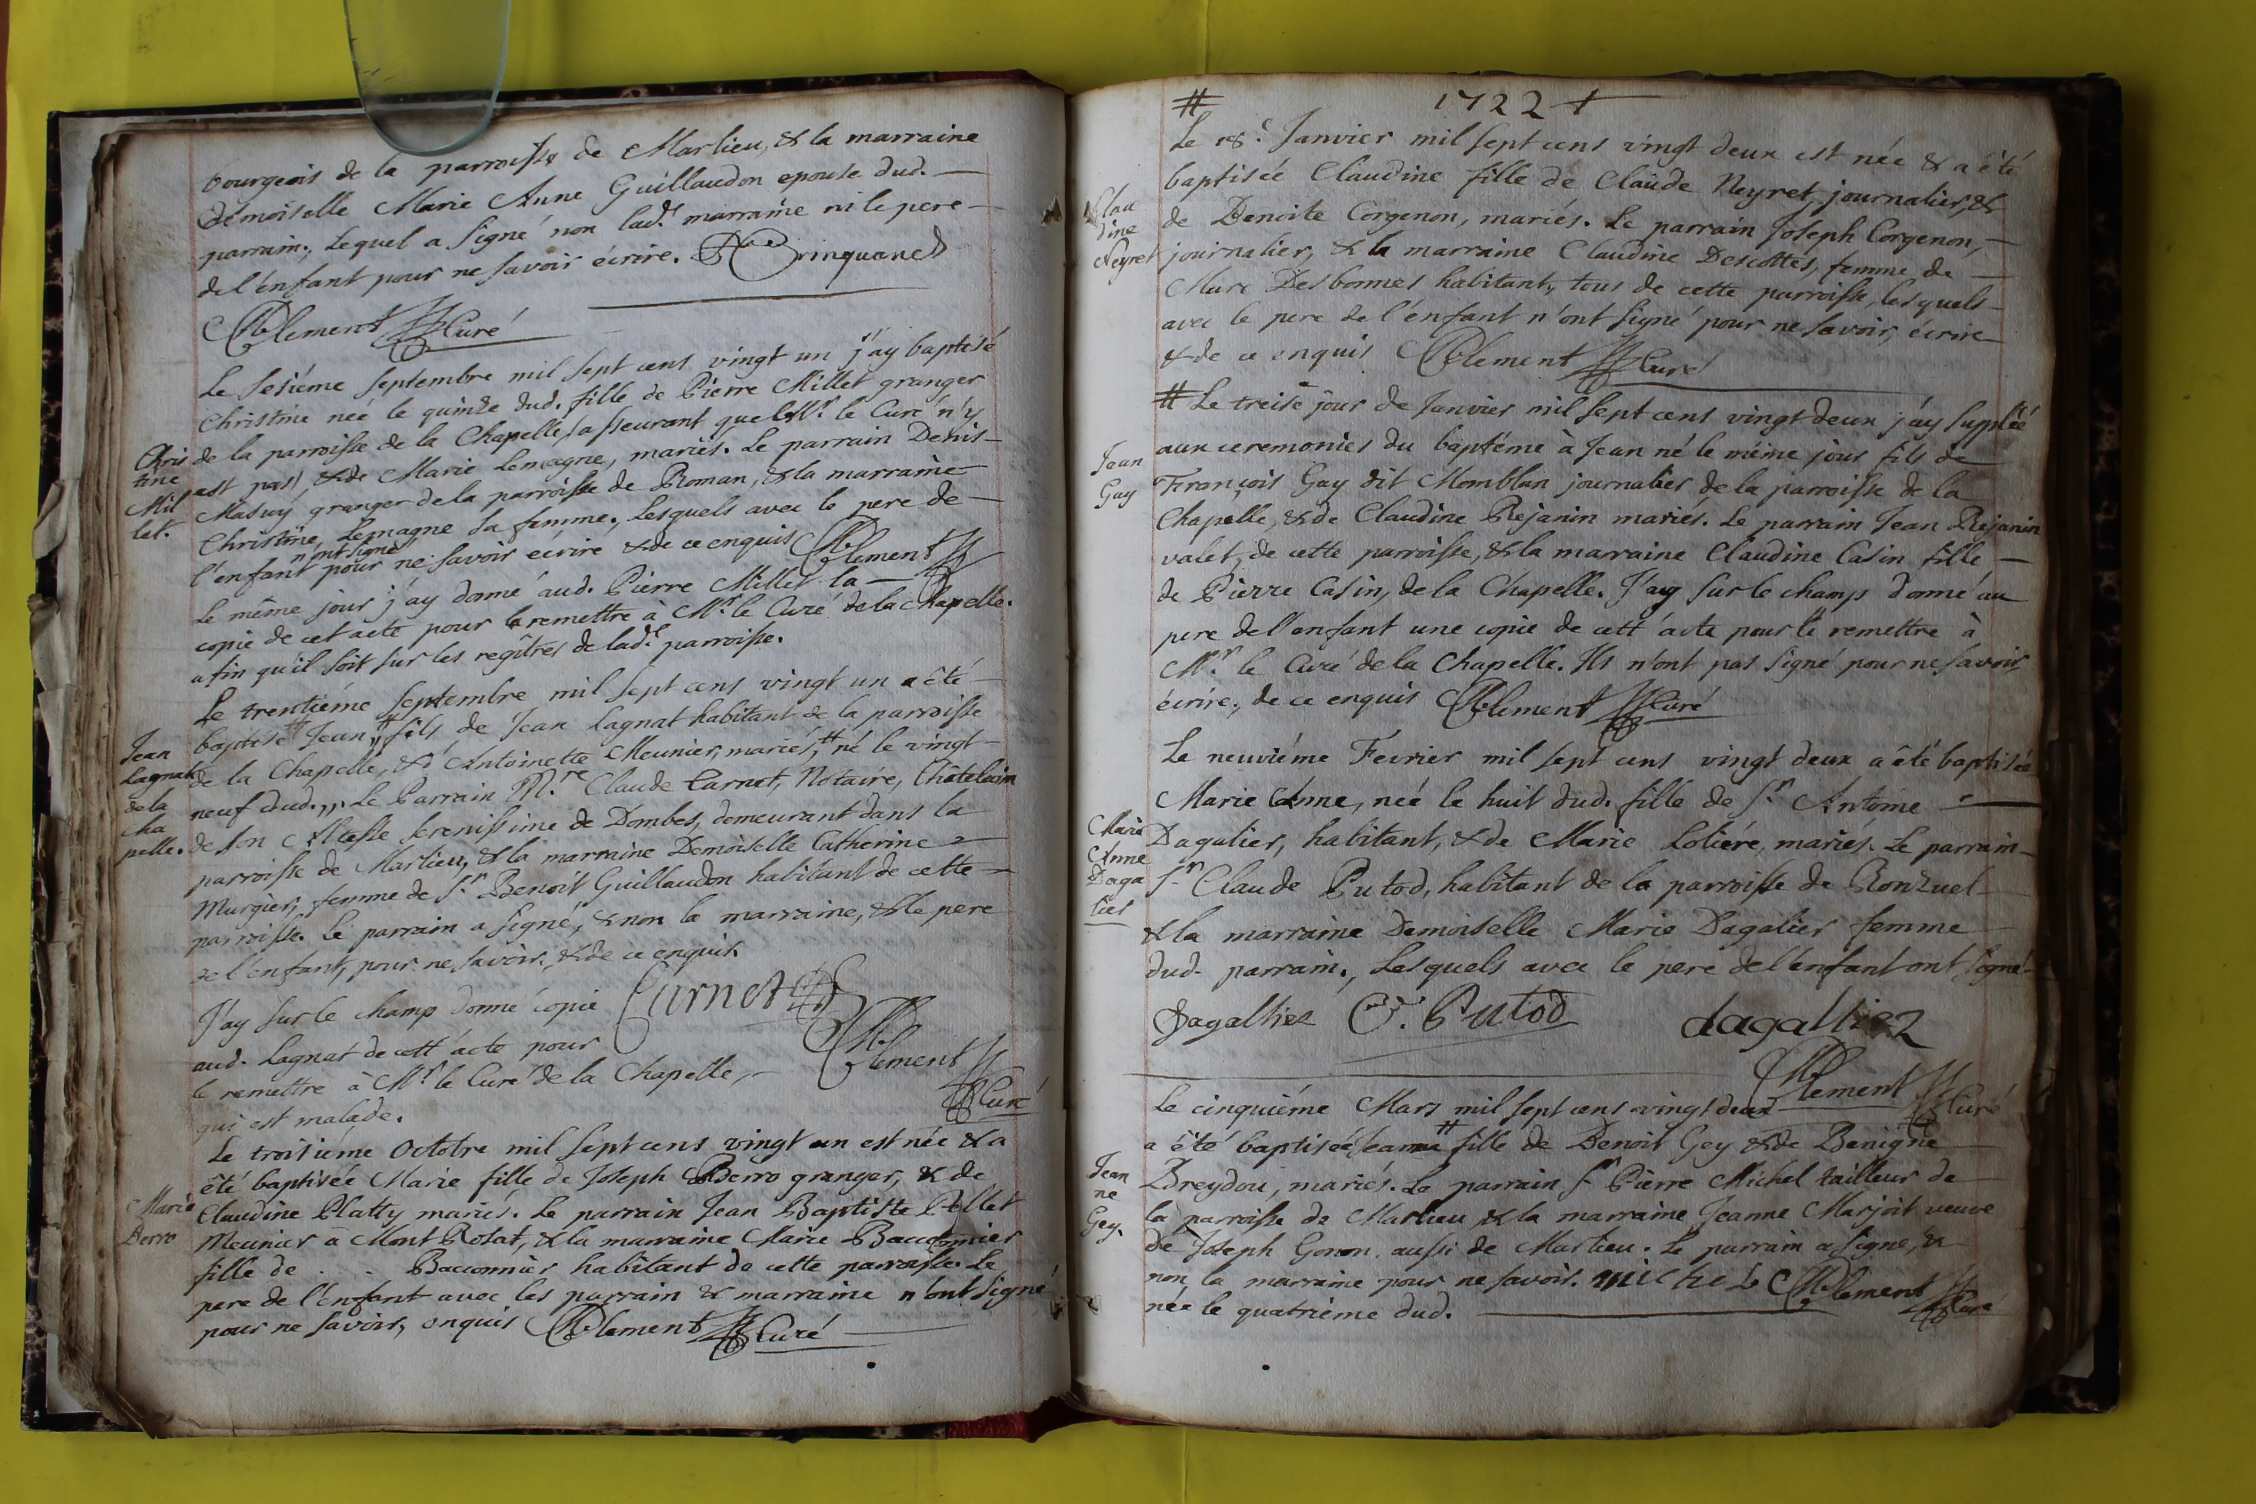 bourgeois de la parroisse de Marlieu, & la marraine
demoiselle Marie Anne Guillaudon epouse dud.
parrain., Lequel a signé non lad.e marraine ni le pere
de l'enfant pour ne savoir écrire.
Clement Curé
Le sesiéme septembre mil sept cens vingt un j'ay baptisé
Christine née le quinze dud. fille de Pierre Millet granger
de la parroisse de la Chapelle (asseurant que Mr. le Curé n'y
est pas) & de Marie Lemagne, mariés. Le parrain Denis
Masuÿ granger de la parroisse de Roman, & la marraine
Christine Lemagne sa femme., Lesquels avec le pere de
l'enfant n'ont signé pour ne savoir écrire & de ce enquis Clement
Chris
tine
Mil
let.
Le même jour j'ay donné aud. Pierre Millet la
copie de cet acte pour la remettre à Mr. le Curé de la Chapelle.
afin qu'il soit sur les regîtres de lad.e parroisse.
Le trentiéme septembre mil sept cens vingt un a été
baptisé # Jean,, fils de Jean Lagnat habitant de la parroisse
de la Chapelle, & d'Antoinette Meunier, mariés, # né le vingt
neuf dud.,, Le Parrain M.re Claude Carnet, Notaire, Châtelain
de son Altesse serenissime de Dombes, demeurant dans la
parroisse de Marlieu, & la marraine Demoiselle Catherine
Murgier, femme de sr. Benoit Guillaudon habitant de cette
parroisse. Le parrain a signé, & non la marraine, & le pere
de l'enfant, pour ne savoir, & de ce enquis.
Jean
Lagnat
de la
cha
pelle.
J'ay sur le champ donné copie Carnet
aud. Lagnat de cett'acte pour
le remettre à Mr. le Curé de la Chapelle,
qui est malade.
Clement
Curé
Le troisiéme Octobre mil sept cens vingt un est née & a
été baptisée Marie fille de Joseph Derro granger, & de
Claudine Platty mariés. Le parrain Jean Baptiste Pellet
Meunier à Mont Rosat, & la marraine Marie Bacconnier
fille de . . Bacconnier habitant de cette parroisse. Le
pere de l'enfant avec les parrain & marraine n'ont signé
pour ne savoir, enquis Clement Curé
Marie
Derro
# 1722 +
Le 18.e Janvier mil sept cens vingt deux est née & a été
baptisée Claudine fille de Claude Neyret, journalier, &
de Benoite Corgenon, mariés. Le parrain Joseph Corgenon,
journalier, & la marraine Claudine Descottes, femme de
Marc Desbonnes habitant, tous de cette parroisse, lesquels
avec le pere de l'enfant n'ont signé pour ne savoir, écrire
& de ce enquis Clement Curé
Clau
dine
Neyret
# Le treise jour de Janvier mil sept cens vingt deux j'ay supplée
aux ceremonies du baptéme à Jean né le même jour fils de
François Gay dit Momblan journalier de la parroisse de la
Chapelle, & de Claudine Rejanin mariés. Le parrain Jean Rejanin
valet, de cette parroisse, & la marraine Claudine Casin fille
de Pierre Casin, de la Chapelle. J'ay sur le champ donné au
pere de l'enfant une copie de cett'acte pour la remettre à
Mr. le Curé de la Chapelle. Ils n'ont pas signé pour ne savoir
écrire., de ce enquis Clement Curé
Jean
Gay
Le neuviéme Fevrier mil sept cens vingt deux a été baptisée
Marie Anne, née le huit dud. fille de sr. Antoine
Dagalier, habitant, & de Marie Loliere, mariés. Le parrain
sr. Claude Putod, habitant de la parroisse de Ronzuel
& la marraine Demoiselle Marie Dagalier femme
dud. parrain., Lesquels avec le pere de l'enfant ont signé
Marie
Anne
Daga
lier
Dagallier C. Putod dagallier
Clement Curé
Le cinquiéme Mars mil sept cens vingt deux
a été baptisée Jeanne # fille de Benoit Gey & de Benigne
Breydou, mariés. Le parrain sr. Pierre Michel tailleur de
la parroisse de Marlieu & la marraine Jeanne Marjoit veuve
de Joseph Gonon aussi de Marlieu. Le parrain a signé, &
non la marraine pour ne savoir. michel Clement Curé
née le quatrième dud.
Jean
ne
Gey.